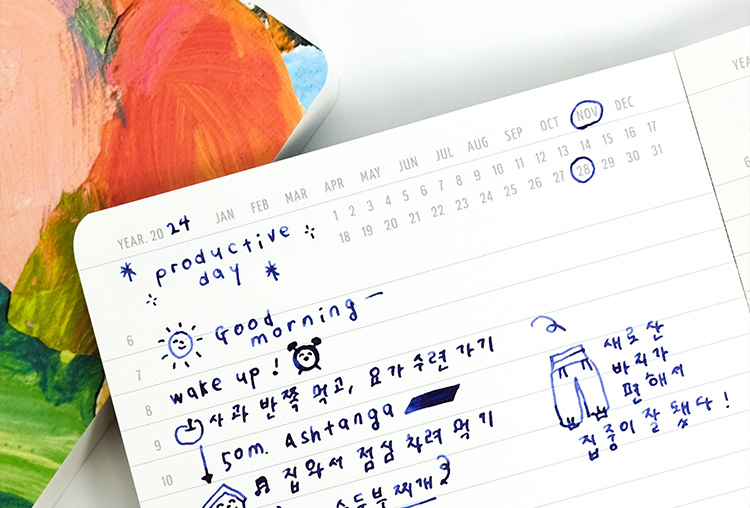 YEAR. 20 24 JAN FEB MAR APR MAY JUN JUL AUG SEP OCT NOV DEC
1 2 3 4 5 6 7 8 9 10 11 12 13 14 15 16 17
18 19 20 21 22 23 24 25 26 27 28 29 30 31
YEA
productive
day
6 Good
morning
7 wake up!
8 사과 반쪽 먹고, 요가 수련 가기
9 50m. Ashtanga
10 집 와서 점심 차려 먹기
순두부찌개
새로 산
바지가
편해서
집중이 잘 됐다!
6